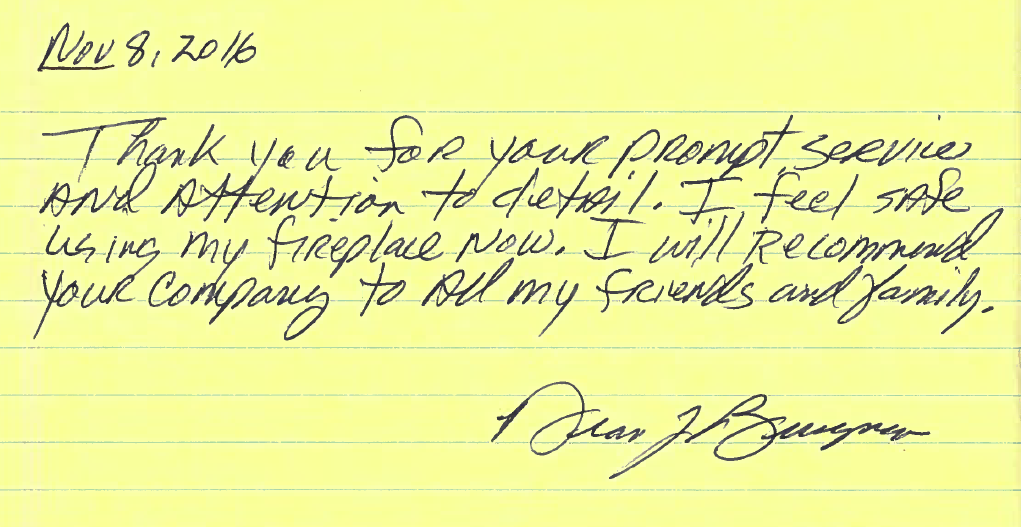 Nov 8, 2016
Thank you for your prompt service
and attention to detail. I feel safe
using my fireplace now. I will recommend
your company to all my friends and family.